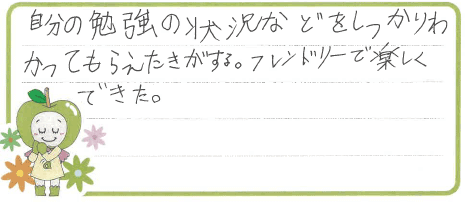 自分の勉強の状況などをしっかりわ
かってもらえたきがする。フレンドリーで楽しく
できた。